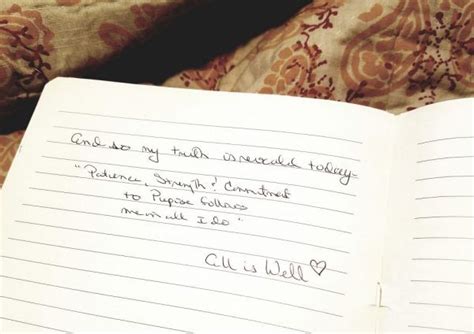 And so my truth is revealed today-
"Patience, Strength & Commitment
to Purpose follows
me in all I do"
All is Well ♡